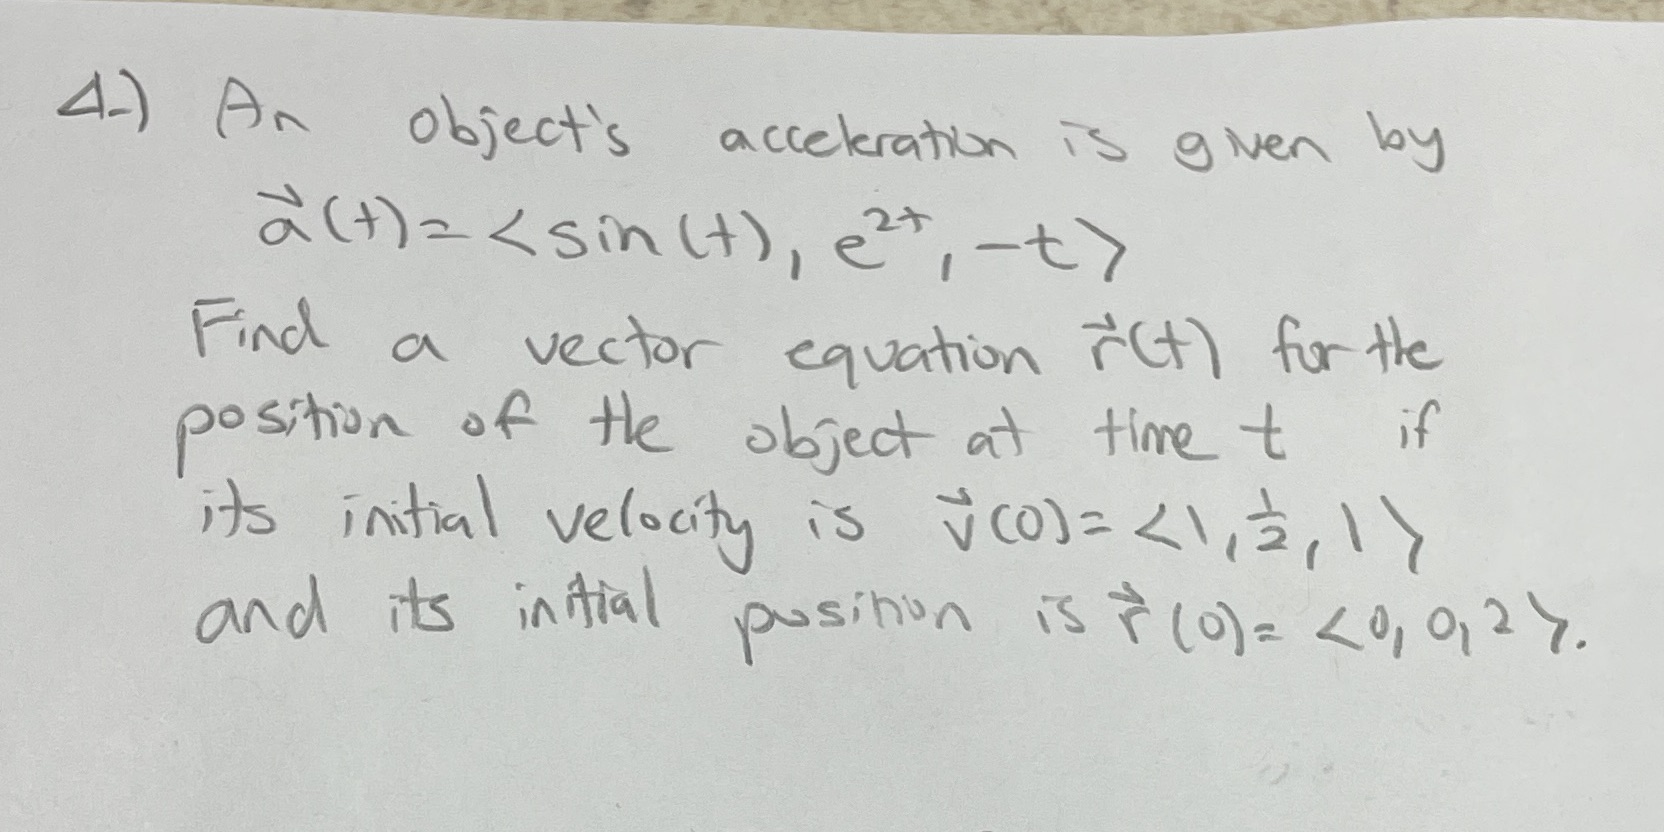 4.) An object's acceleration is given by
a⃗(t)=<sin(t), e²ᵗ, -t>
Find a vector equation r⃗(t) for the
position of the object at time t if
its initial velocity is v⃗(0)=<1, ½, 1>
and its initial position is r⃗(0)= <0, 0, 2>.